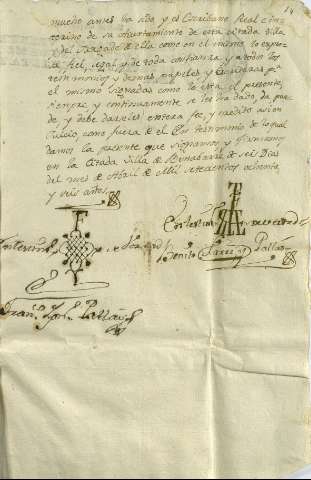 14
mucho antes ha sido y es Escribano Real e Inte
rino de su Ayuntamiento de esta citada Villa
y del Juzgado de ella como en el mismo lo expre
sa, fiel, legal, y de toda confianza, y a todos los
testimonios y demas papeles y Escrituras pr
el mismo signadas como la esta el presente,
siempre y continuamente se les ha dado, da, pue
de y debe darseles entera fee, y credito así en
Juicio, como fuera de el. En testimonio de lo qual
damos la presente que signamos y firmamos
en la Citada Villa de Benabarre de seis Dias
del mes de Abril de Mil setecientos ochenta
y seis años.
En testim de verdad
En testim de verdad
Benito Pallas
Franco Pallas